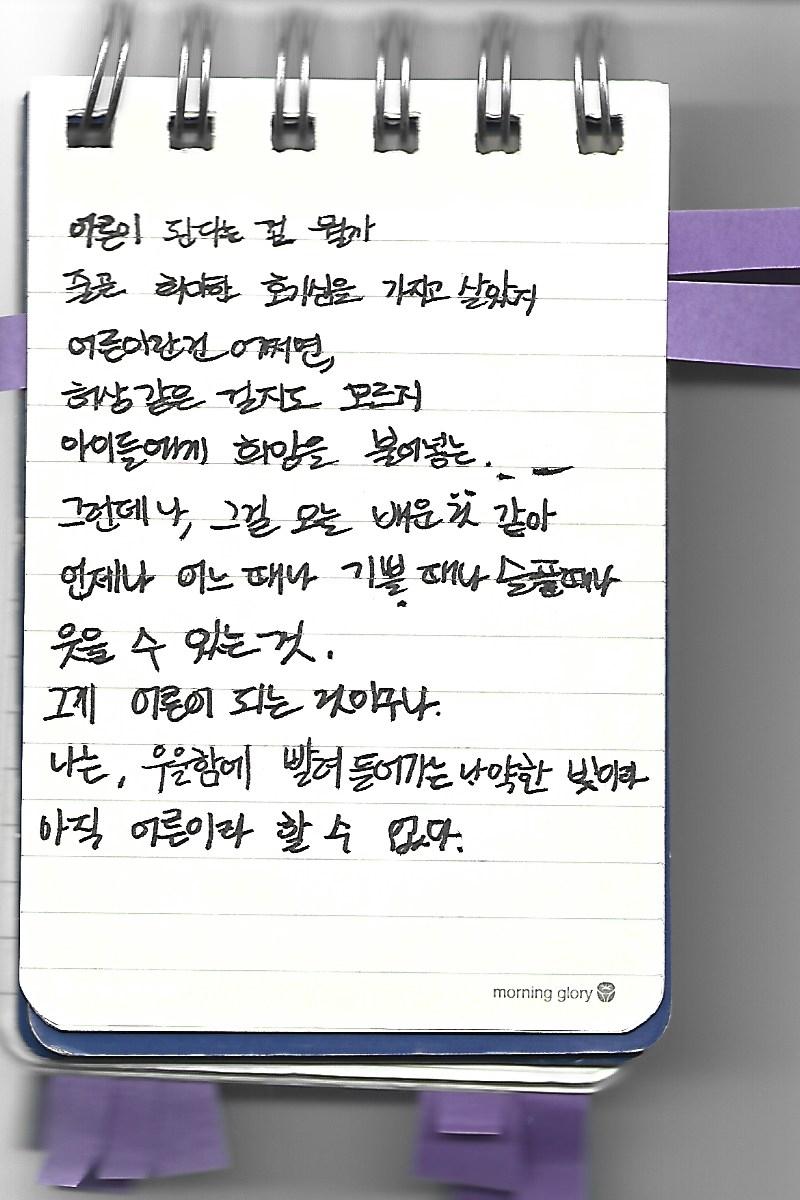 어른이 된다는 건 뭘까
줄곧 희미한 호기심을 가지고 살았지
어른이란건 어쩌면,
허상같은 걸지도 모르지
아이들에게 희망을 불어넣는.
그런데 나, 그걸 오늘 배운 것 같아
언제나 어느 때나 기쁠 때나 슬플때나
웃을 수 있는 것.
그게 어른이 되는 것이구나.
나는, 우울함에 빨려 들어가는 나약한 빛이라
아직 어른이라 할 수 없다.
morning glory